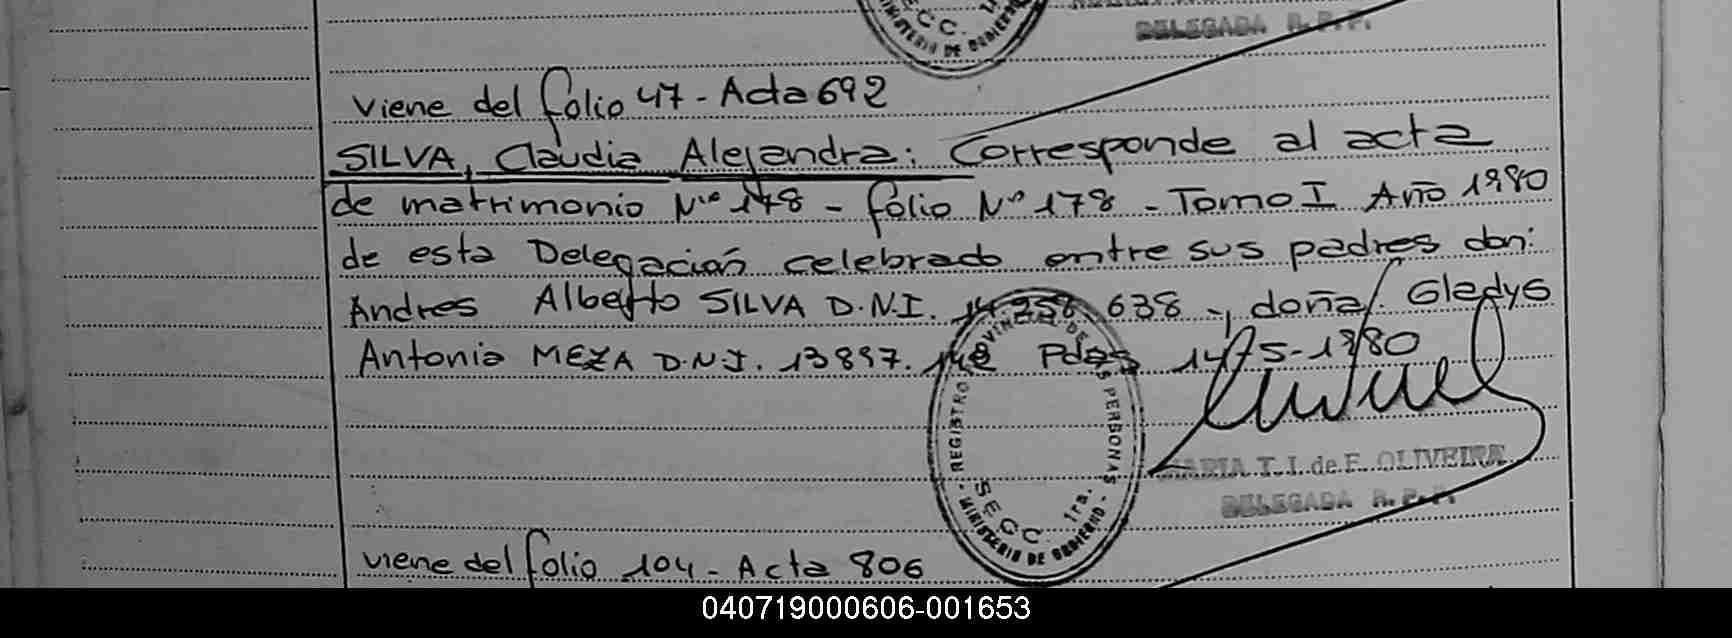 SECC. 1ra.
MINISTERIO DE GOBIERNO
DELEGADA R.P.P.
Viene del folio 47 - Acta 692
SILVA, Claudia Alejandra: Corresponde al acta
de matrimonio Nº 178 - folio Nº 178 - Tomo I Año 1980
de esta Delegación celebrado entre sus padres don:
Andres Alberto SILVA D.N.I. 14.258.638 -, doña: Gladys
Antonia MEZA D.N.I. 13897.142 Pdas 14-5-1980
REGISTRO PROVINCIAL DE LAS PERSONAS
SECC. 1ra.
MINISTERIO DE GOBIERNO
MARIA T. I. de F. OLIVEIRA
DELEGADA R.P.P.
viene del folio 104 - Acta 806
040719000606-001653